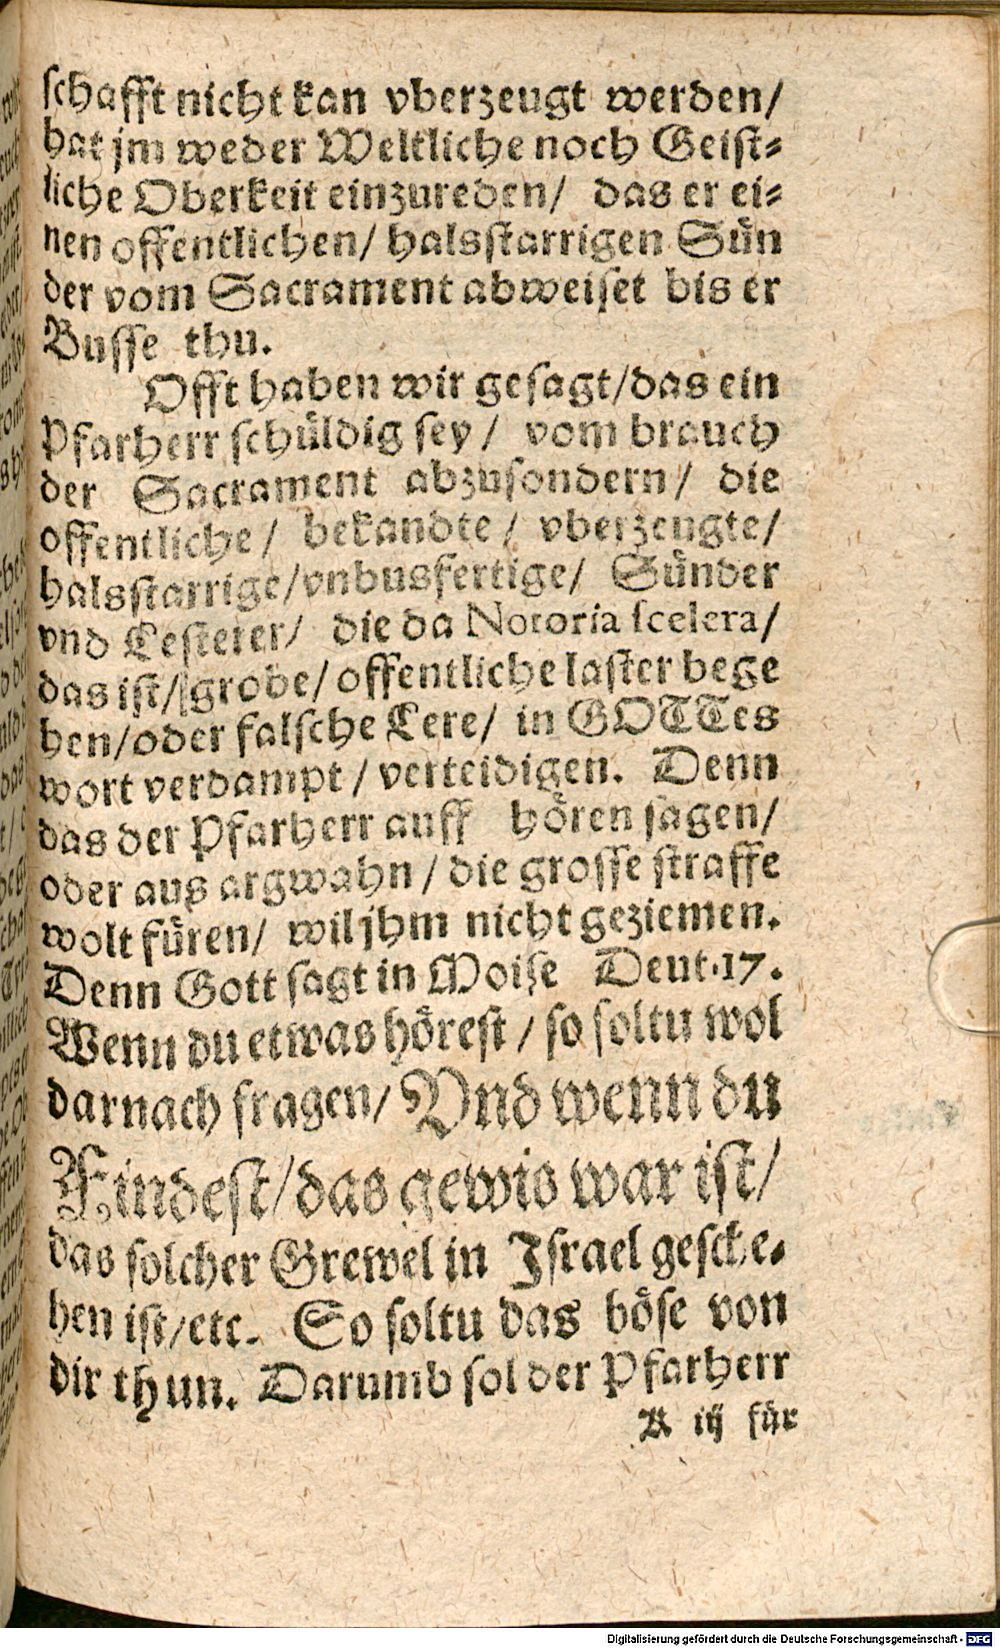 schafft nicht kan vberzeugt werden/
hat jm weder Weltliche noch Geist-
liche Oberkeit einzureden/ das er ei-
nen offentlichen/ halsstarrigen Sün
der vom Sacrament abweiset bis er
Busse thu.
Offt haben wir gesagt/das ein
Pfarherr schüldig sey/ vom brauch
der Sacrament abzusondern/ die
offentliche/ bekandte/ vberzeugte/
halsstarrige/vnbusfertige/ Sünder
vnd Lesterer/ die da Notoria scelera/
das ist/ grobe/ offentliche laster bege
hen/oder falsche Lere/ in GOTTes
wort verdampt/ verteidigen. Denn
das der Pfarherr auff hören sagen/
oder aus argwahn/ die grosse straffe
wolt füren/ wil jhm nicht geziemen.
Denn Gott sagt in Moise Deut.17.
Wenn du etwas hörest/ so soltu wol
darnach fragen/ Vnd wenn du
Findest/das gewis war ist/
das solcher Grewel in Israel gesche-
hen ist/etc. So soltu das böse von
dir thun. Darumb sol der Pfarherr
K iij für
Digitalisierung gefördert durch die Deutsche Forschungsgemeinschaft - DFG